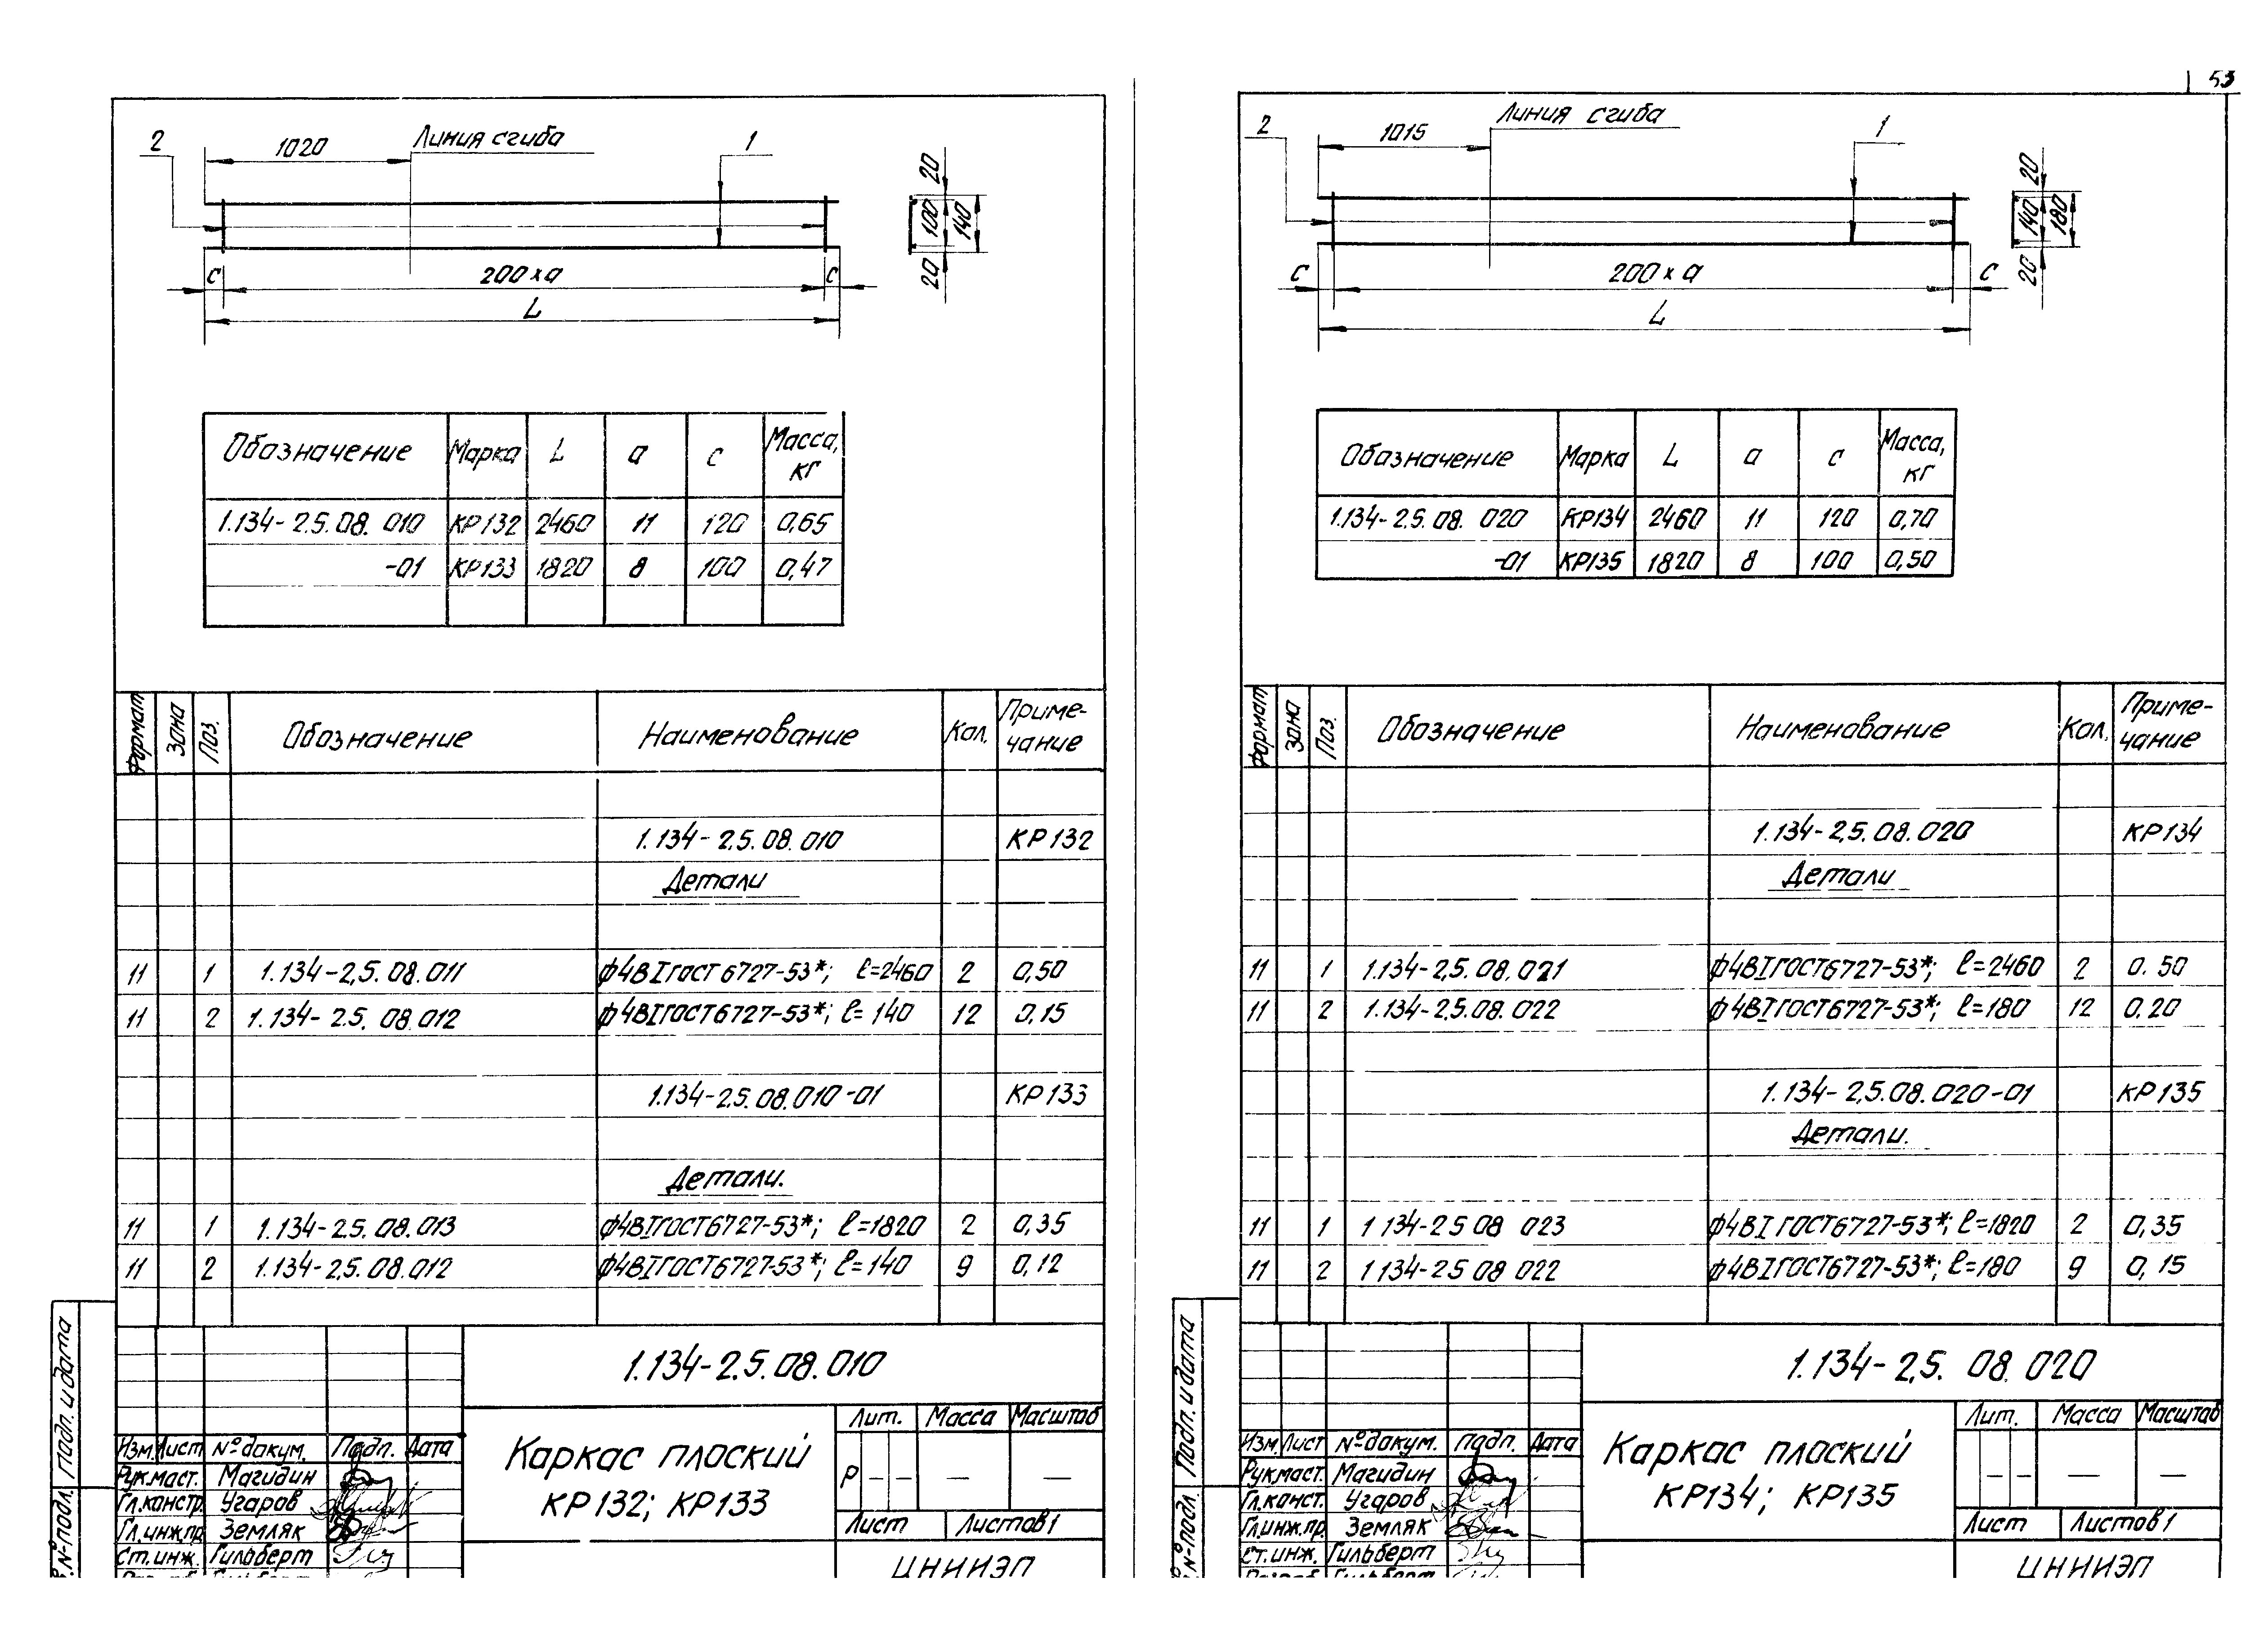 53
2
1020
Линия сгиба
1
20
100
140
20
С
200 х а
С
L
Обозначение Марка L а с Масса, кг
1.134-2.5.08. 010 КР132 2460 11 120 0,65
-01 КР133 1820 8 100 0,47
Формат Зона Поз. Обозначение Наименование Кол. Приме-
чание
1.134-2.5.08.010 КР132
Детали
11 1 1.134-2,5.08.011 ф4ВIГОСТ6727-53*; ℓ=2460 2 0,50
11 2 1.134-2.5.08.012 ф4ВIГОСТ6727-53*; ℓ=140 12 0,15
1.134-2.5.08.010-01 КР133
Детали.
11 1 1.134-2.5.08.013 ф4ВIГОСТ6727-53*; ℓ=1820 2 0,35
11 2 1.134-2,5.08.012 ф4ВIГОСТ6727-53*; ℓ=140 9 0,12
Подп. и дата
№ подл.
1.134-2.5.08.010
Изм. Лист № докум. Подп. Дата
Рук.маст. Магидин
Гл.констр. Угаров
Гл.инж.пр Земляк
Ст.инж. Гильберт
Каркас плоский
КР132; КР133
Лит. Масса Масштаб
Р – – – –
Лист Листов 1
ЦНИИЭП
2
1015
Линия сгиба
1
20
140
180
20
С
200 х а
С
L
Обозначение Марка L а с Масса, кг
1.134-2.5.08. 020 КР134 2460 11 120 0,70
-01 КР135 1820 8 100 0,50
Формат Зона Поз. Обозначение Наименование Кол. Приме-
чание
1.134-2,5.08.020 КР134
Детали
11 1 1.134-2,5.08.021 ф4ВIГОСТ6727-53*; ℓ=2460 2 0.50
11 2 1.134-2,5.08.022 ф4ВIГОСТ6727-53*; ℓ=180 12 0.20
1.134-2,5.08.020-01 КР135
Детали.
11 1 1 134-2 5 08 023 ф4ВI ГОСТ6727-53*; ℓ=1820 2 0,35
11 2 1 134-2 5 08 022 ф4ВIГОСТ6727-53*; ℓ=180 9 0,15
Подп. и дата
№ подл.
1.134-2,5. 08. 020
Изм. Лист № докум. Подп. Дата
Рук.маст. Магидин
Гл.конст. Угаров
Гл.инж.пр. Земляк
Ст.инж. Гильберт
Каркас плоский
КР134; КР135
Лит. Масса Масштаб
– – – –
Лист Листов 1
ЦНИИЭП